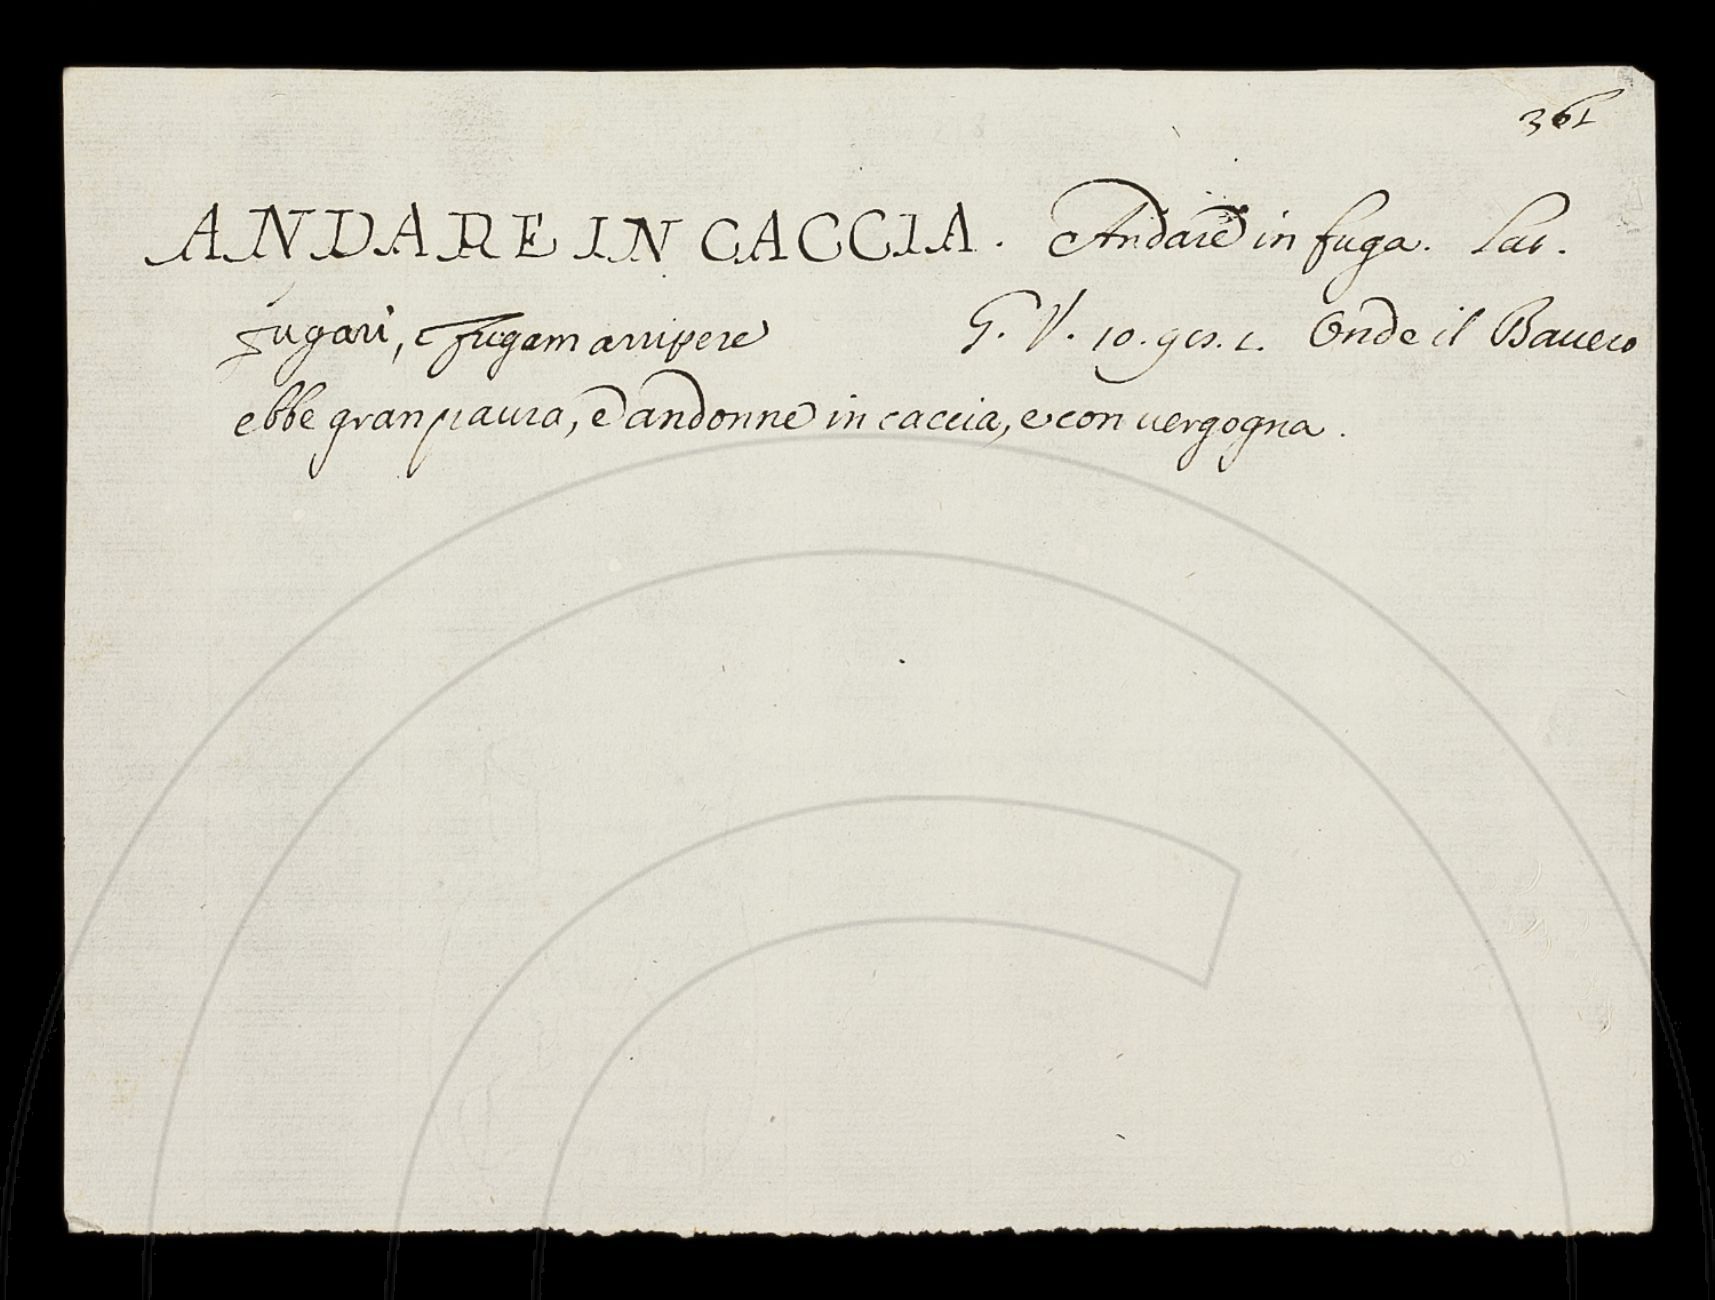 361
ANDARE IN CACCIA. Andare in fuga. Lat.
fugari, fugam arripere G. V. 10. Onde il Bavero
ebbe gran paura, e andonne in caccia, e con vergogna.